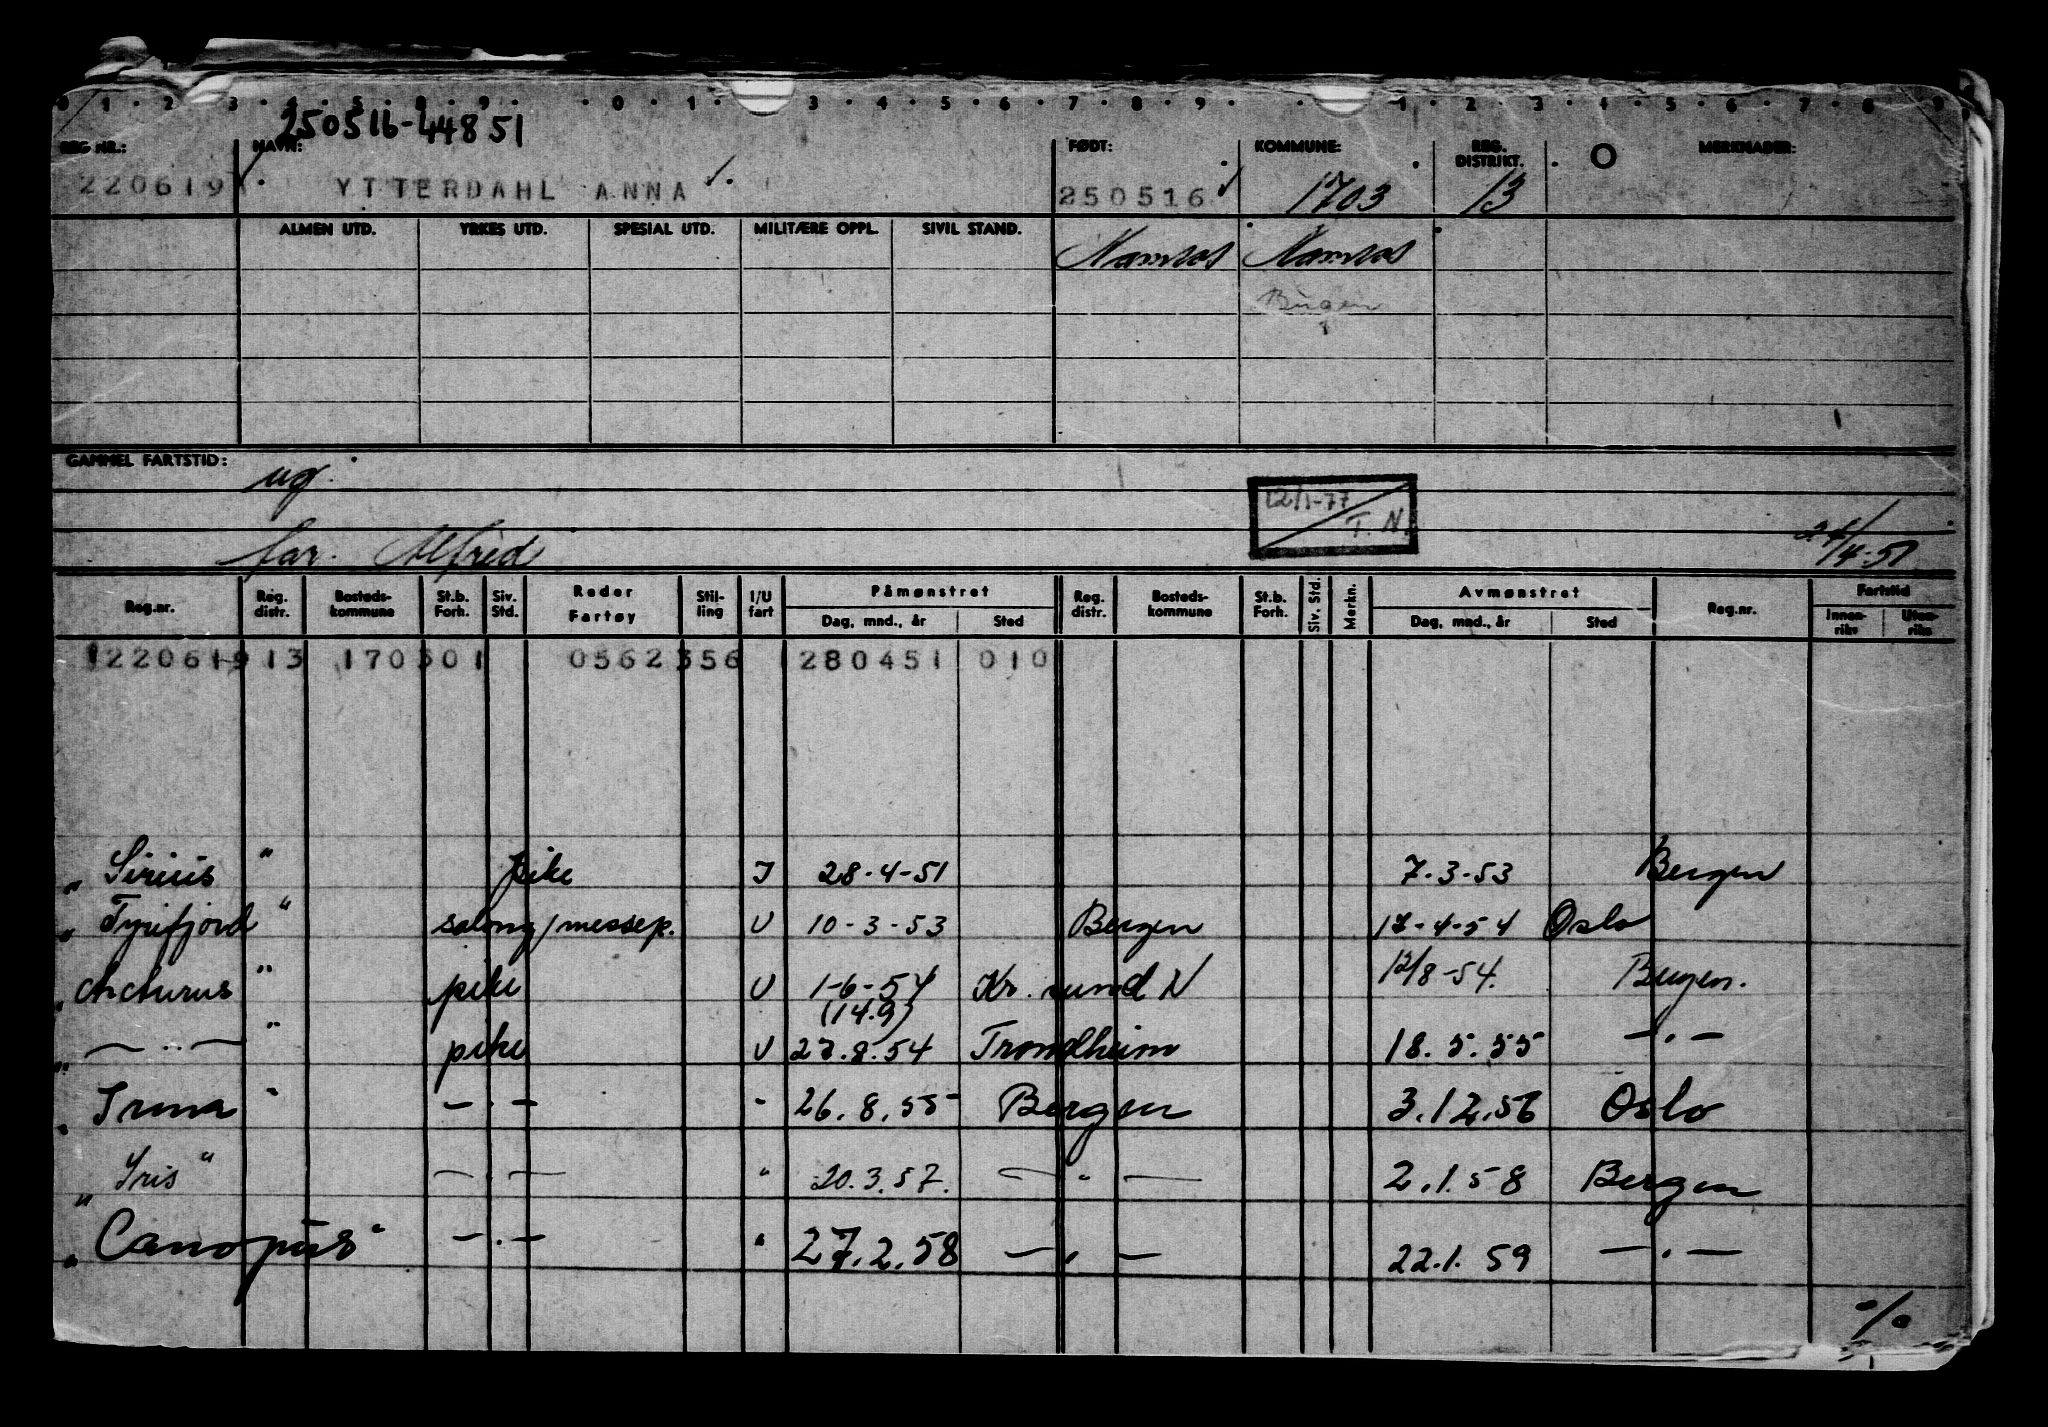 0 1 2 3 4 5 8 9 0 1 3 4 5 6 7 8 9 1 2 3 4 5 6 7 8 9
250516-44851
REG NR.: NAVN: FØDT: KOMMUNE: REG. DISTRIKT. O MERKNADER:
220619 YTTERDAHL ANNA 250516 1703 13
ALMEN UTD. YRKES UTD. SPESIAL UTD. MILITÆRE OPPL. SIVIL STAND. Namsos Namsos
Bergen
GAMMEL FARTSTID: ug.
12/1-77 T. N.
far. Alfred 24/4-51
Reg.nr. Reg. distr. Bosteds-kommune St.b. Forh. Siv. Std. Reder Fartøy Stil-ling I/U fart Påmønstret Dag, mnd., år Sted Reg. distr. Bosteds-kommune St.b. Forh. Siv. Std. Merkn. Avmønstret Dag, mnd., år Sted Reg.nr. Fartstid Innen-riks Uten-riks
1220619 13 170301 0562356 280451 010
" Sirius " Pike I 28-4-51 7-3-53 Bergen
" Tyrifjord " salong/messep. U 10-3-53 Bergen 17-4-54 Oslo
" Arcturus " pike U 1-6-54 Kr. sund N 12/8-54. Bergen.
(14.9)
" — " — " pike U 27.8.54 Trondheim 18.5.55 — . —
" Irma " — . — " 26.8.55 Bergen 3.12.56 Oslo
" Iris " — . — " 20.3.57. — " — 2.1.58 Bergen
" Canopus " — . — " 27.2.58 — . — 22.1.59 — . —